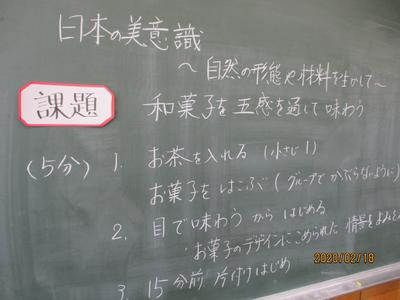 日本の美意識
～自然の形態や材料を生かして～
課題
和菓子を五感を通して味わう
(5分) 1. お茶を入れる (小さじ1)
お菓子をはこぶ (グループでかぶらないように)
2. 目で味わうからはじめる
・お菓子のデザインにこめられた情景を
3. 15分前 片付けはじめ
2020/02/18